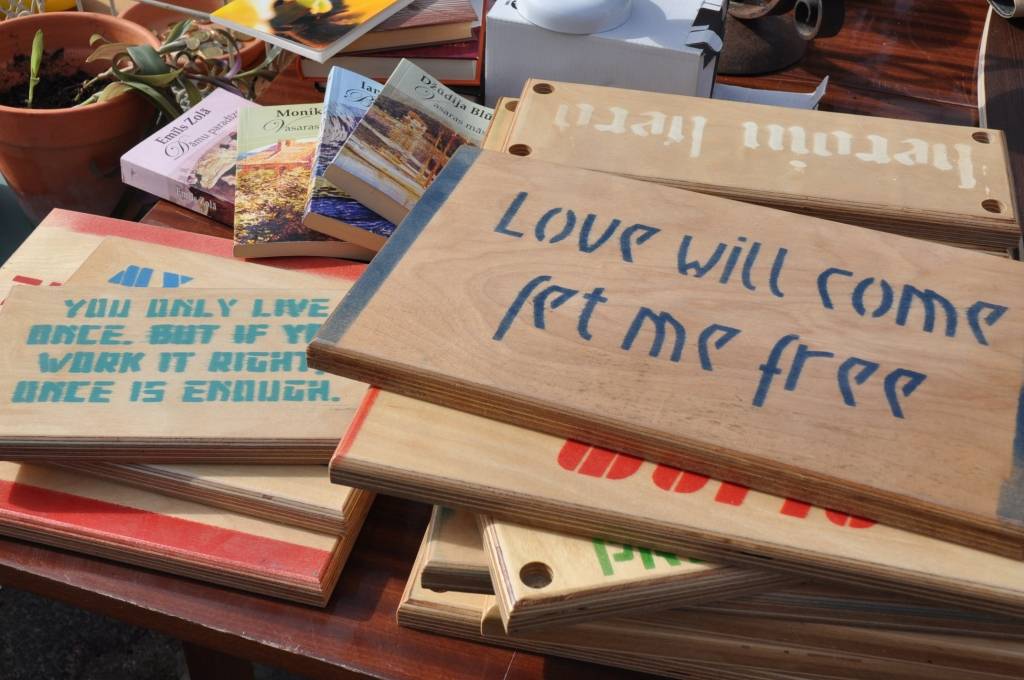 Emīls Zolā
Dāmu paradīze
Emīls Zolā
Monik
Vasaras
Džūdija Blū
Vasaras mās
Love will come
set me free
YOU ONLY LIVE
ONCE. BUT IF YO
WORK IT RIGHT,
ONCE IS ENOUGH.